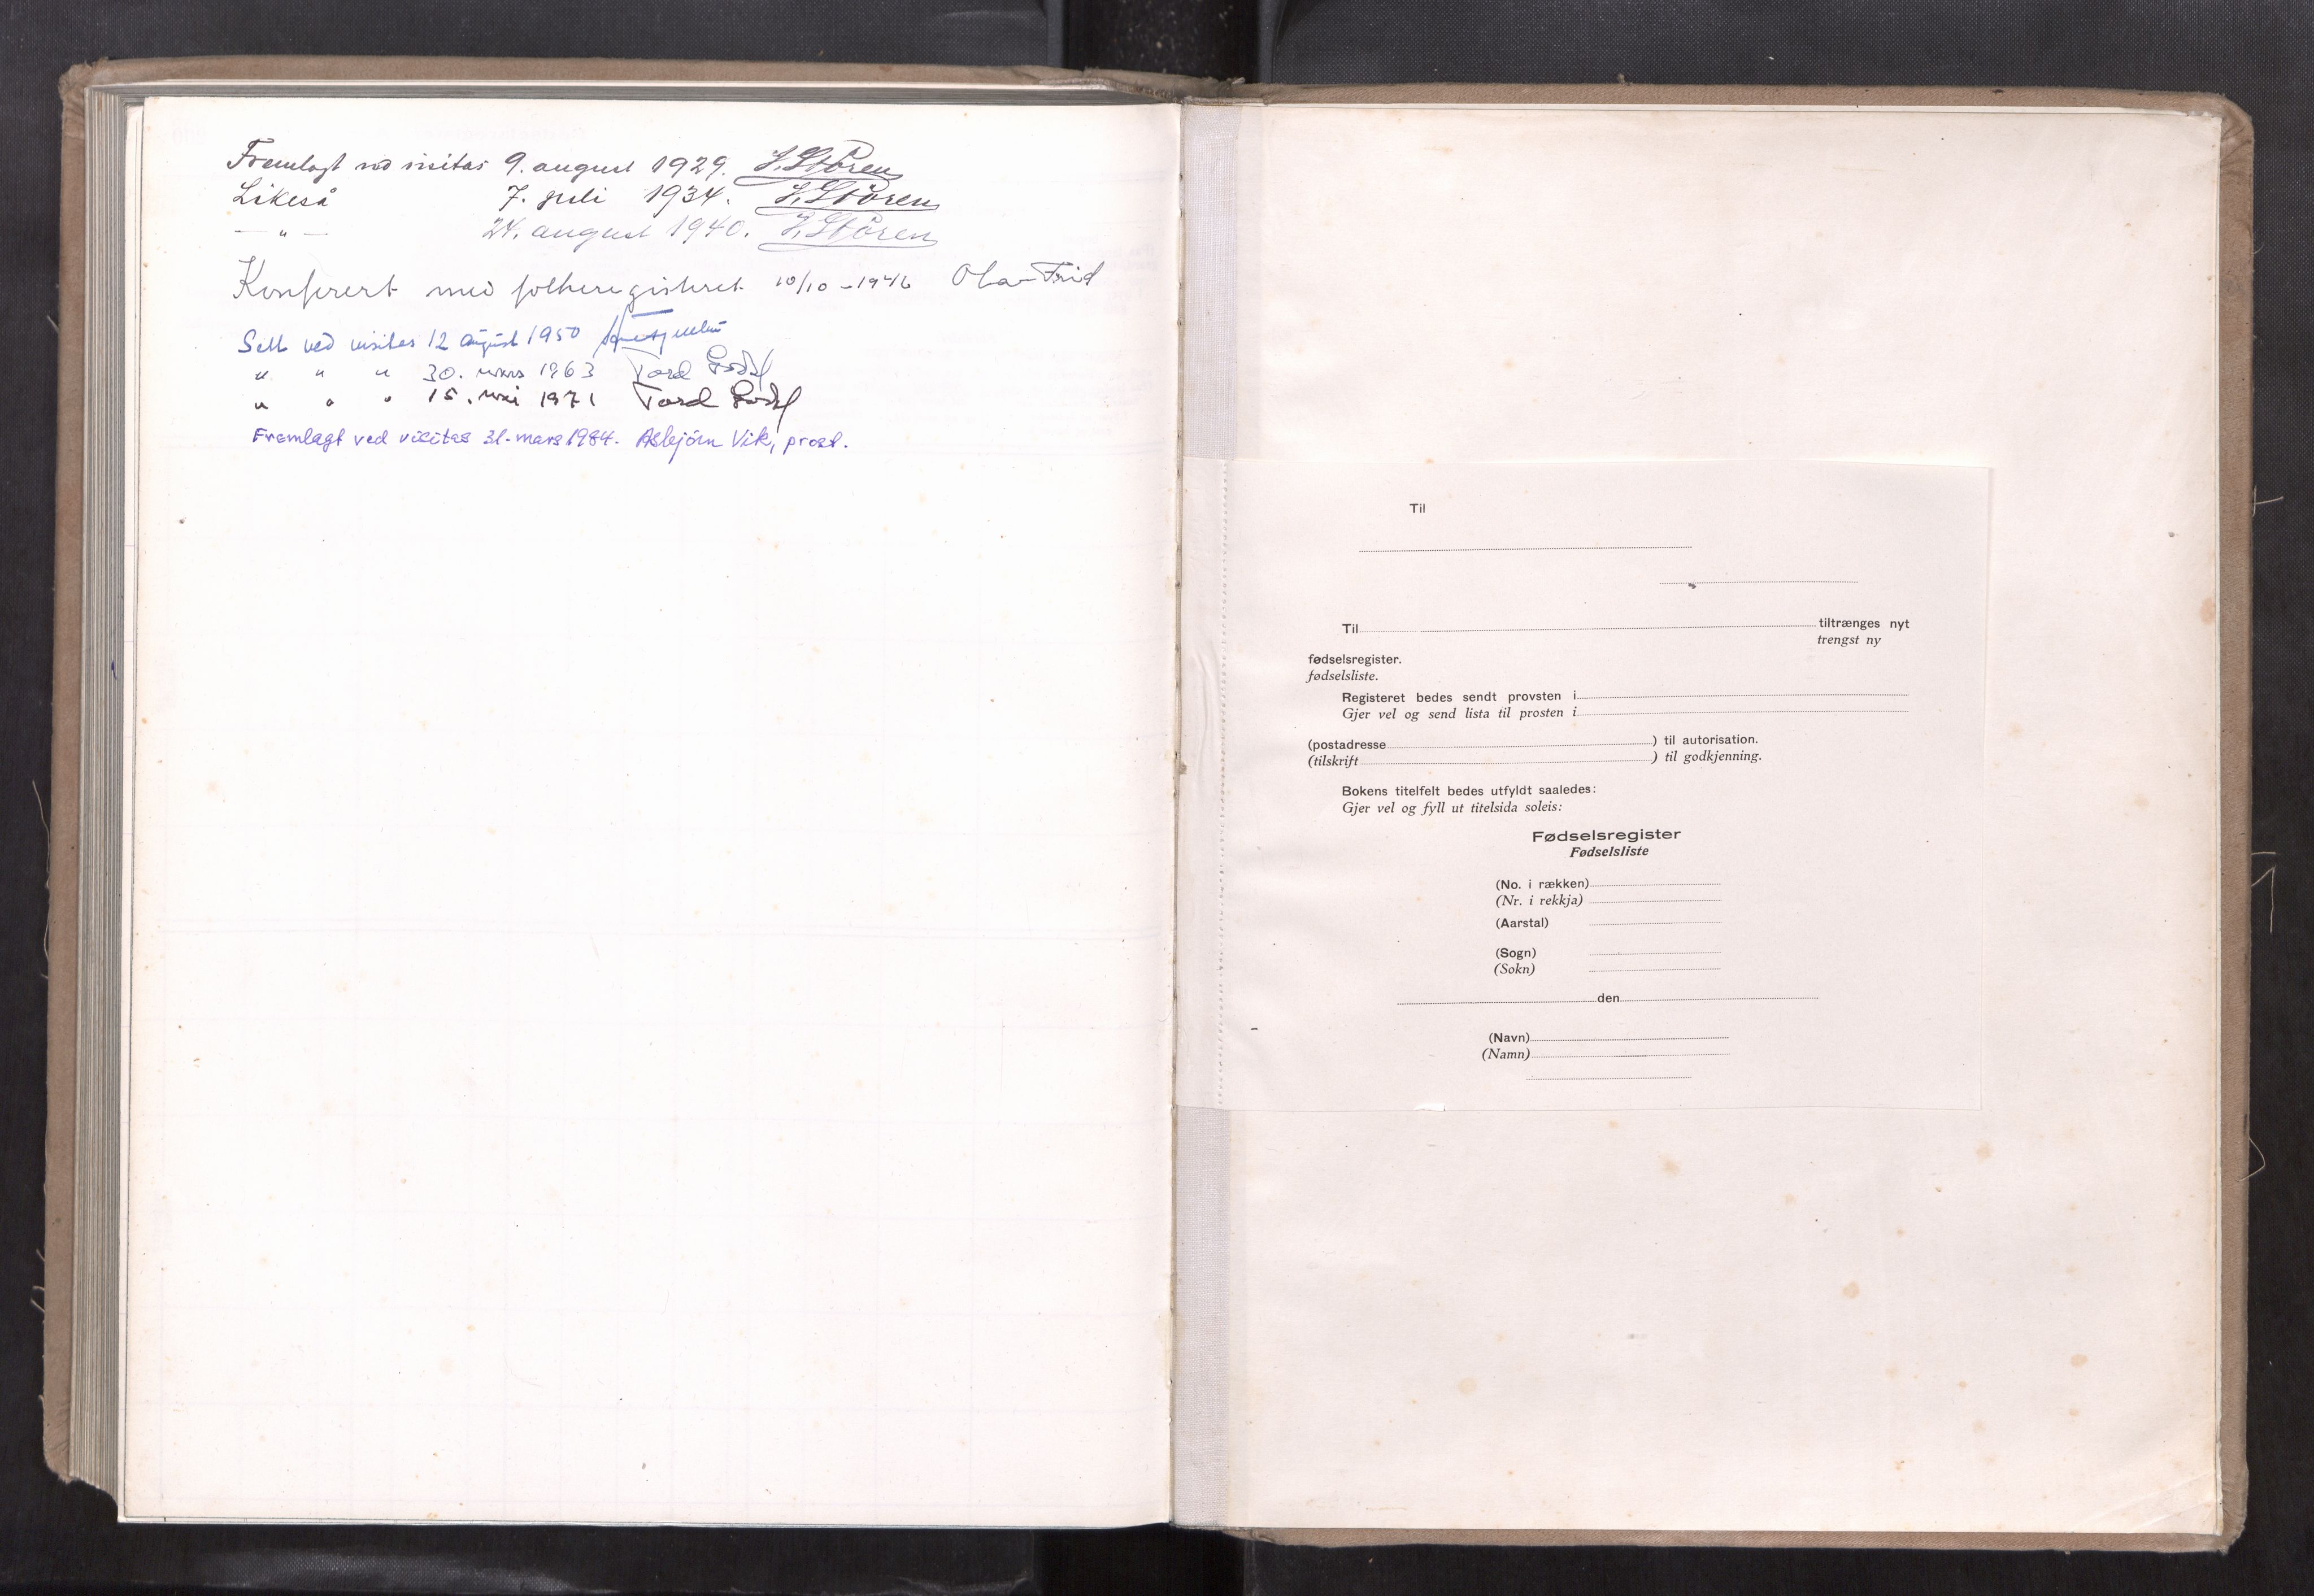 Fremlagt ved visitas 9. august 1929. J. Støren
Likeså 7. juli 1934. J. Støren
— " — 24. august 1940. J. Støren
Konferert med folkeregisteret 10/10 - 1946 Olav Frid
Sett ved visitas 12 august 1950
" " " 30. mars 1963 Tord Godal
" " " 15. mai 1971 Tord Godal
Fremlagt ved visitas 31. mars 1984. Asbjörn Vik, prost.
Til
Til tiltrænges nyt
trengst ny
fødselsregister.
fødselsliste.
Registeret bedes sendt provsten i
Gjer vel og send lista til prosten i
(postadresse ) til autorisation.
(tilskrift ) til godkjenning.
Bokens titelfelt bedes utfyldt saaledes:
Gjer vel og fyll ut titelsida soleis:
Fødselsregister
Fødselsliste
(No. i rækken)
(Nr. i rekkja)
(Aarstal)
(Sogn)
(Sokn)
den
(Navn)
(Namn)